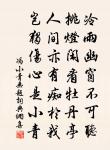 冷雨幽窗不可聽
挑燈閒看牡丹亭
人間亦有癡於我
豈獨傷心是小青
馮小青